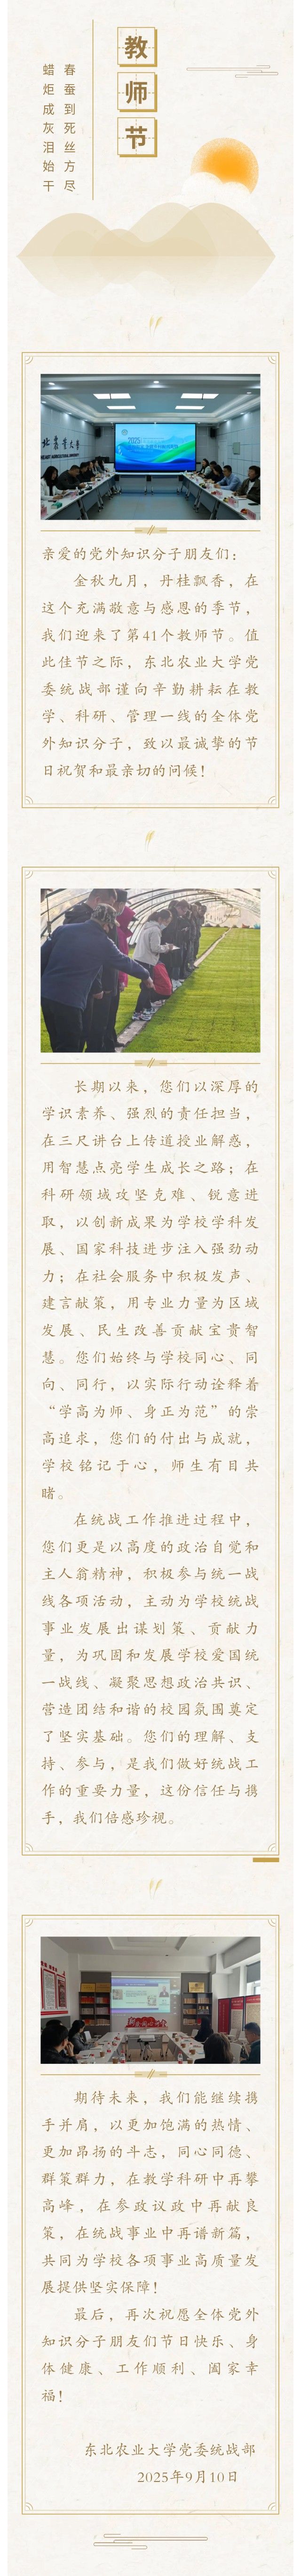 教师节
春蚕到死丝方尽
蜡炬成灰泪始干
北农业大学
2025
亲爱的党外知识分子朋友们：
金秋九月，丹桂飘香，在
这个充满敬意与感恩的季节，
我们迎来了第41个教师节。值
此佳节之际，东北农业大学党
委统战部谨向辛勤耕耘在教
学、科研、管理一线的全体党
外知识分子，致以最诚挚的节
日祝贺和最亲切的问候！
长期以来，您们以深厚的
学识素养、强烈的责任担当，
在三尺讲台上传道授业解惑，
用智慧点亮学生成长之路；在
科研领域攻坚克难、锐意进
取，以创新成果为学校学科发
展、国家科技进步注入强劲动
力；在社会服务中积极发声、
建言献策，用专业力量为区域
发展、民生改善贡献宝贵智
慧。您们始终与学校同心、同
向、同行，以实际行动诠释着
“学高为师、身正为范”的崇
高追求，您们的付出与成就，
学校铭记于心，师生有目共
睹。
在统战工作推进过程中，
您们更是以高度的政治自觉和
主人翁精神，积极参与统一战
线各项活动，主动为学校统战
事业发展出谋划策、贡献力
量，为巩固和发展学校爱国统
一战线、凝聚思想政治共识、
营造团结和谐的校园氛围奠定
了坚实基础。您们的理解、支
持、参与，是我们做好统战工
作的重要力量，这份信任与携
手，我们倍感珍视。
期待未来，我们能继续携
手并肩，以更加饱满的热情、
更加昂扬的斗志，同心同德、
群策群力，在教学科研中再攀
高峰，在参政议政中再献良
策，在统战事业中再谱新篇，
共同为学校各项事业高质量发
展提供坚实保障！
最后，再次祝愿全体党外
知识分子朋友们节日快乐、身
体健康、工作顺利、阖家幸
福！
东北农业大学党委统战部
2025年9月10日